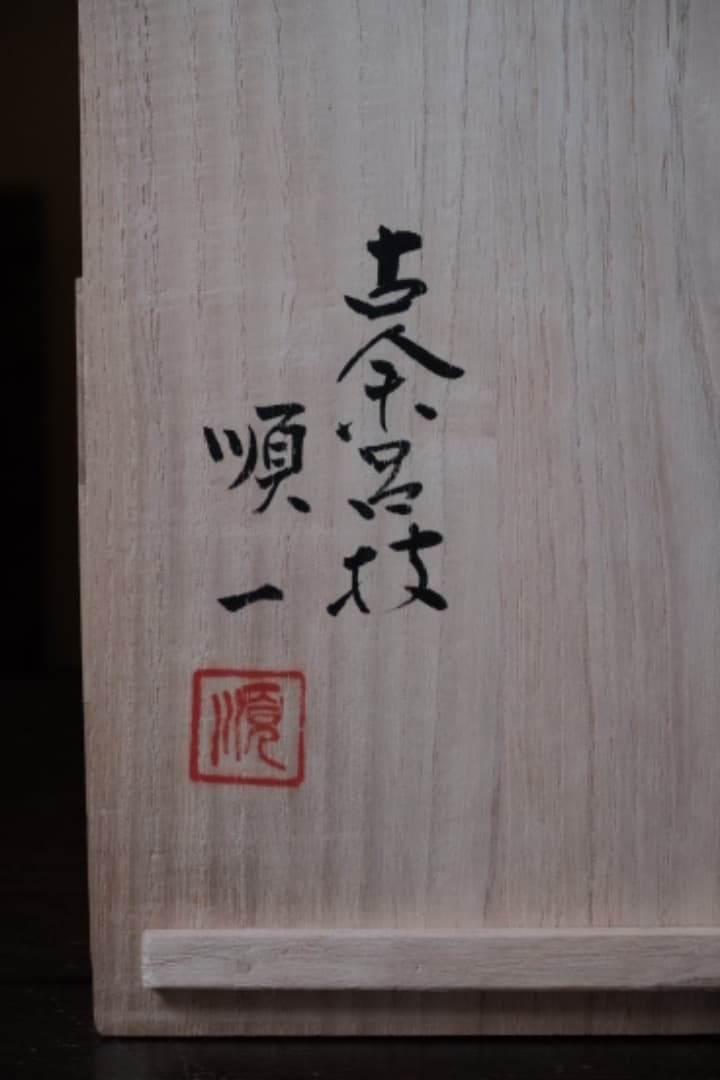 古余呂技
順一
順